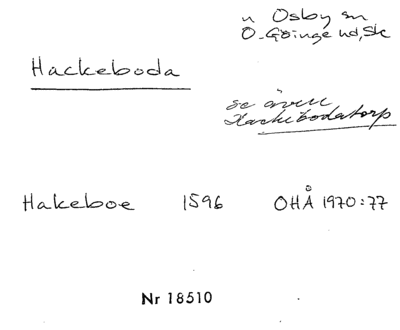 n Osby sn
Ö-Göinge hd, Sk
Hackeboda
se även
Hackebodatorp
Hakeboe 1596 OHÅ 1970:77
Nr 18510